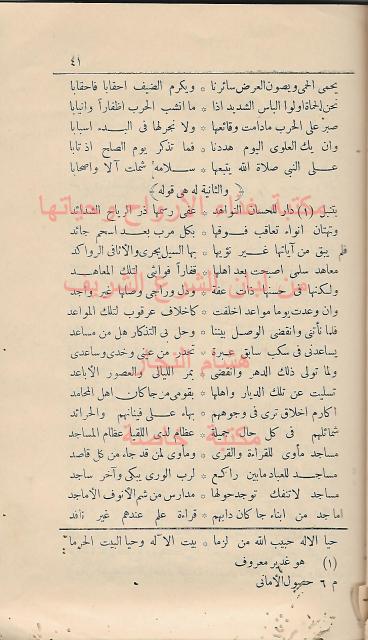 ٤١
يحمى الحمى ويصون العرض سائرنا * ويكرم الضيف احقابا فاحقابا
نحن الحماة اولوا الباس الشديد اذا * ما انشب الحرب اظفارا وانيابا
صبر على الحرب مادامت وقائعها * ولا نجرلها فى البدء اسبابا
وان يك العلوى اليوم هددنا * فما تذكر يوم الصلح اذ تابا
على النبي صلاة الله يتبعها * سلامه شملت آلا واصحابا
﴿ والثانية له هى قوله ﴾
(١) دار للحسان النواهد * عفى رسمها ذر الرياح الشدائد
وتهتان انواء تعاقب فوقها * بكل مرب بعد اسحم جائد
فلم يبق من آياتها غير نؤيها * بها السيل يجرى والاثافى الرواكد
معاهد سلمى اصبحت بعد اهلها * قفارا فوالهفى لتلك المعاهد
ولكنها فى حسنها ذات عفة * ودل وراجى وصلها غير واجد
وان وعدت يوما مواعد اخلفت * كاخلاف عرقوب لتلك المواعد
فلما نأتنى وانقضى الوصل بيننا * وحل بى التذكار هل من مساعد
يساعدنى فى سكب سابق عبرة * تحدر من عينى وخدى وساعدى
ولما تولى ذلك الدهر وانقضى * بمر الليالى والعصور الاباعد
تسليت عن تلك الديار واهلها * بقومى من جاكان اهل المحامد
اكارم اخلاق ترى فى وجوههم * بهاء على فتيانهم والخرائد
شمائلهم فى كل حال جميلة * عظام لدى اللقيا عظام المساجد
مساجد مأوى للقراءة والقرى * ومأوى لمن قد جاء من كل قاصد
مساجد للعباد مابين راكع * لرب الورى يبكى وآخر ساجد
مساجد لاتنفك توجد حولها * مدارس من شم الانوف الاماجد
اماجد من ابناء جاكان دابهم * قراءة علم عندهم غير نافد
حيا الاله حبيب الله من لزما * بيت الاله وحيا البيت الحرما
(١) هو غدير معروف
م ٦ حصول الامانى
مكتبة غذاء الأرواح وحياتها
هشام النجار
مكتبة خاصة